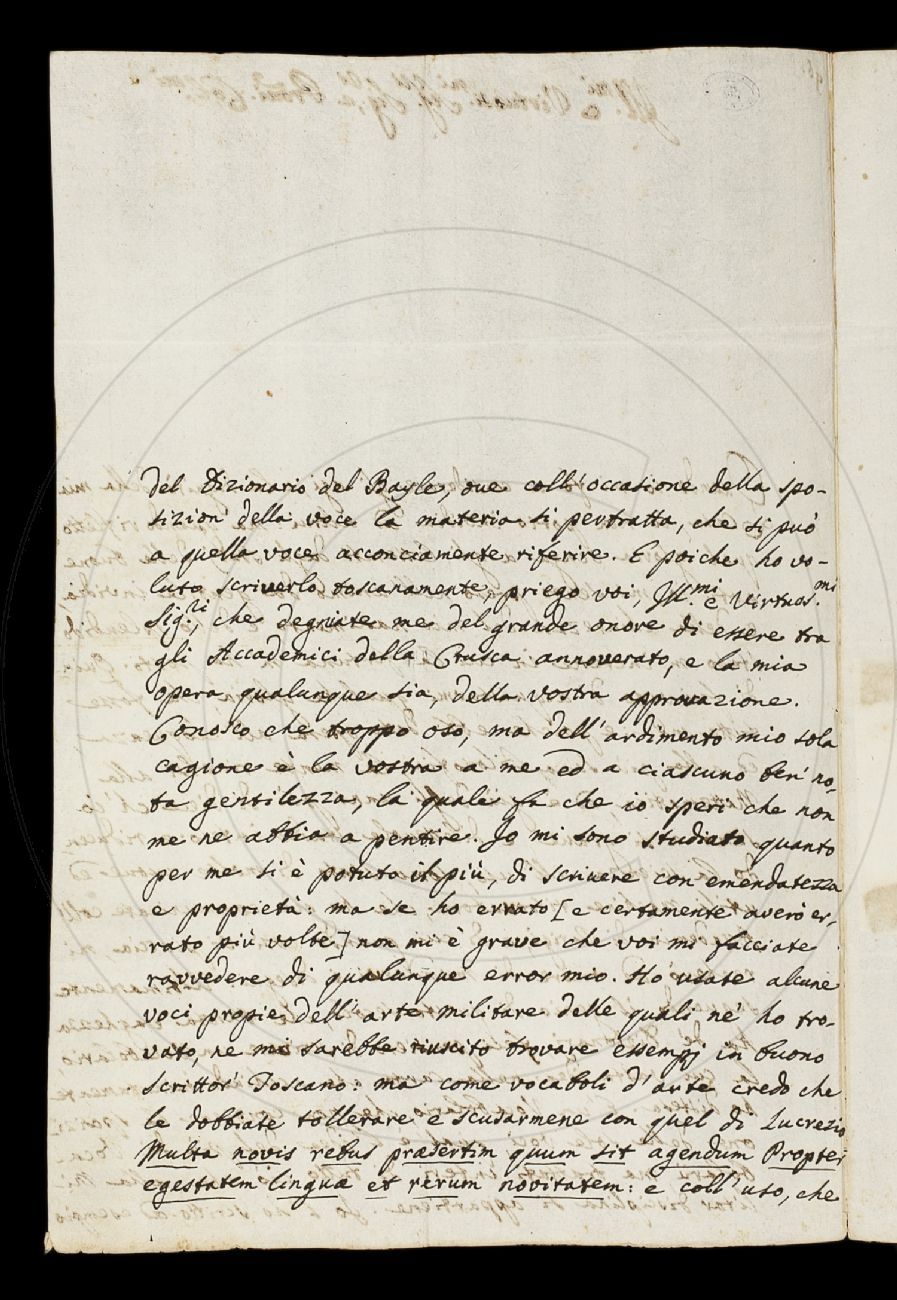 del Dizionario del Bayle, ove coll'occasione della spo-
sizion' della voce la materia si pertratta, che si può
a quella voce acconciamente riferire. E poiche ho vo-
luto scriverlo toscanamente, priego voi, Ill.mi e Virtuos.mi
Sig.ri, che degniate me del grande onore di essere tra
gli Accademici della Crusca annoverato, e la mia
opera qualunque sia, della vostra approvazione.
Conosco che troppo oso, ma dell'ardimento mio sola
cagione è la vostra a me ed a ciascuno ben' no-
ta gentilezza, la quale fa che io speri che non
me ne abbia a pentire. Io mi sono studiato quanto
per me si è potuto il più, di scrivere con emendatezza
e proprietà: ma se ho errato [e certamente averò er-
rato più volte] non mi è grave che voi mi facciate
ravvedere di qualunque error mio. Ho usate alcune
voci propie dell'arte militare delle quali ne' ho tro-
vato, ne mi sarebbe riuscito trovare essempj in buono
Scrittor' Toscano: ma come vocaboli d'arte credo che
le dobbiate tollerare e scusarmene con quel di Lucrezio
Multa novis rebus præsertim quum sit agendum Propter
egestatem linguæ et rerum novitatem: e coll'uso, che